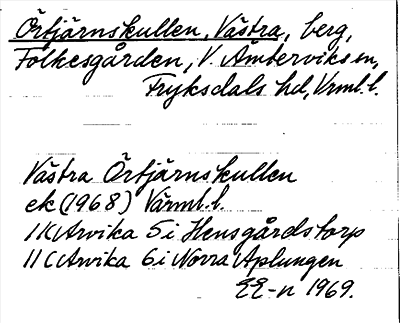 Örtjärnskullen, Västra, berg,
Folkesgården, V. Ämterviks sn,
Fryksdals hd, Vrml. l.
Västra Örtjärnskullen
ek (1968) Värml. l.
11C Arvika 5 i Hensgårdstorp
11C Arvika 6 i Norra Aplungen
EE-n 1969.